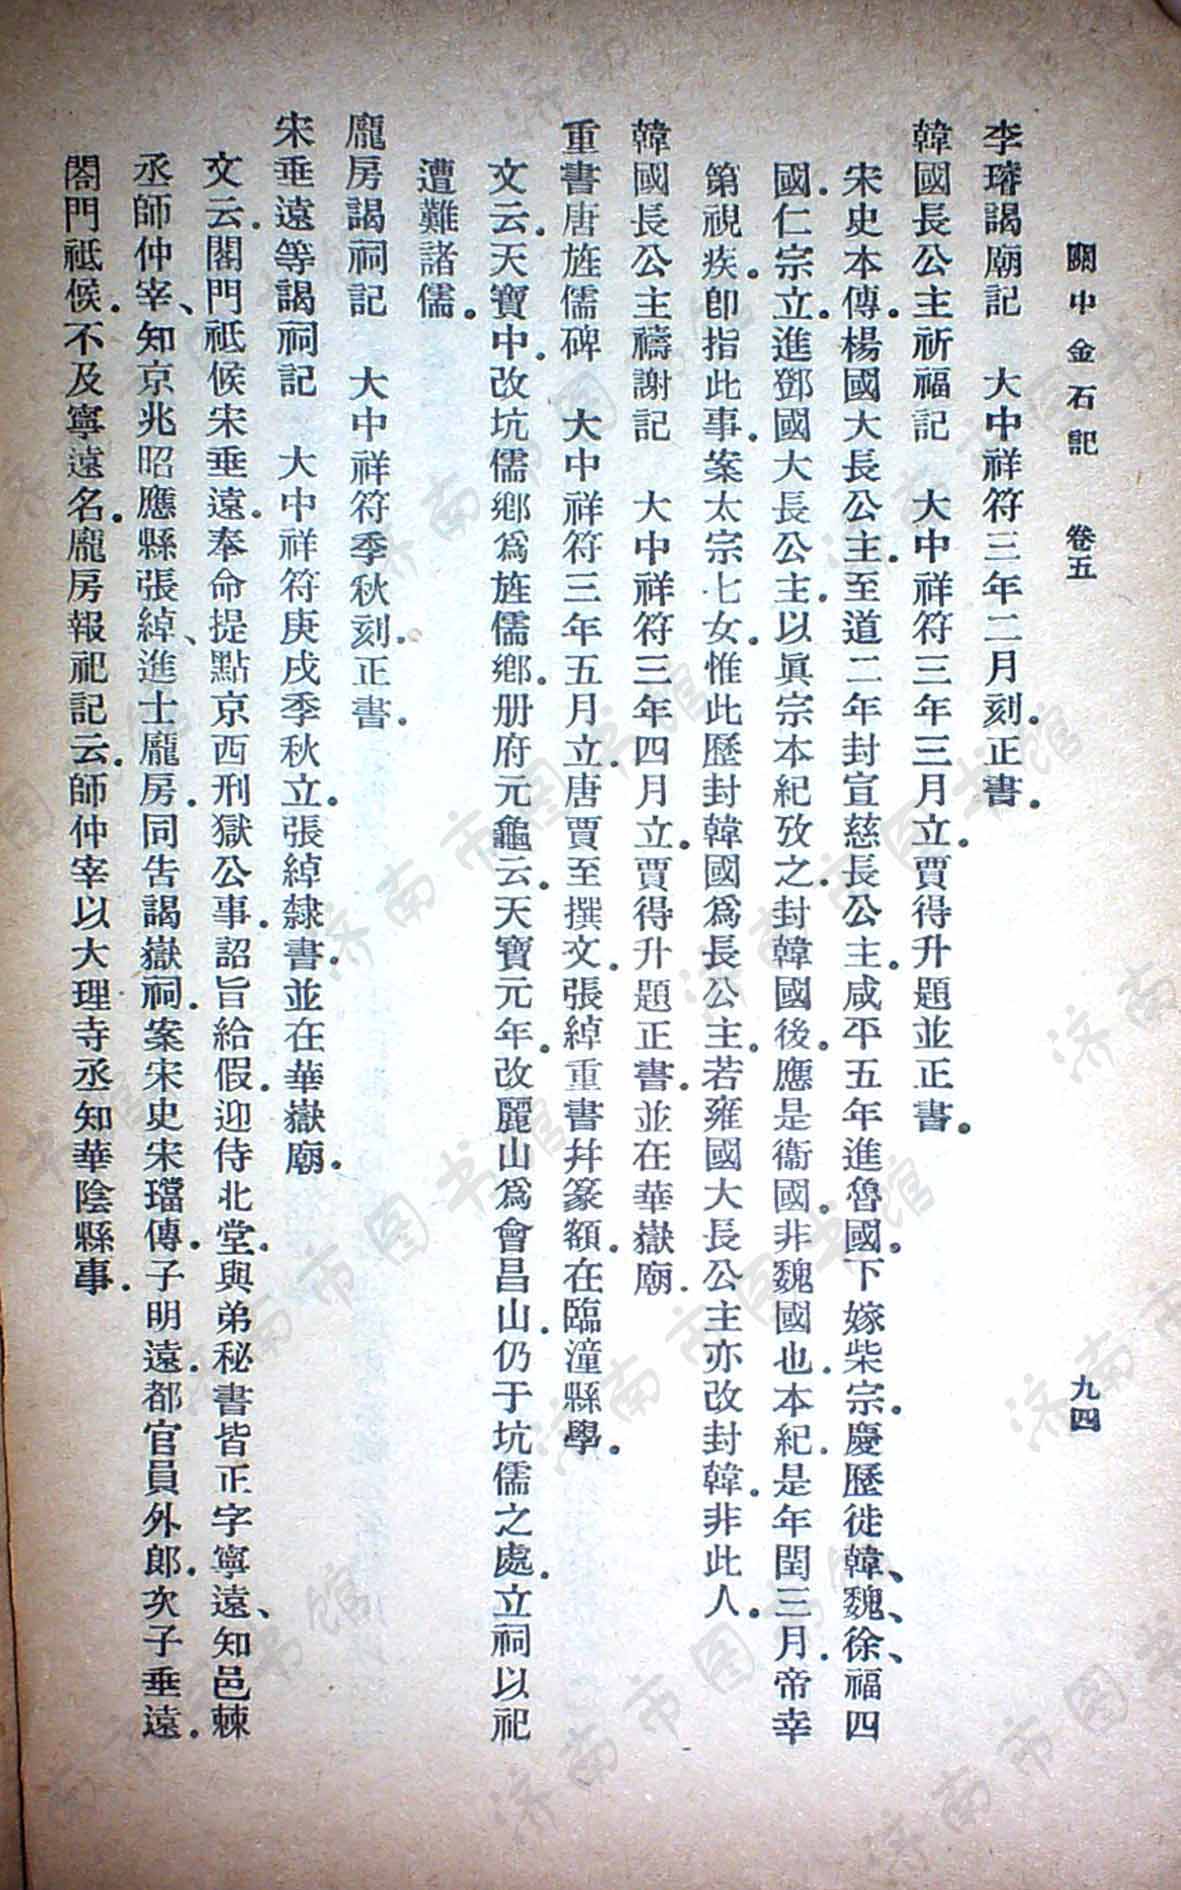 關中金石記　卷五　九四
李璿謁廟記　大中祥符三年二月刻。正書。
韓國長公主祈福記　大中祥符三年三月立。賈得升題並正書。
宋史本傳。楊國大長公主。至道二年封宣慈長公主。咸平五年進魯國。下嫁柴宗。慶歷徙韓、魏、徐、福四
國。仁宗立。進鄧國大長公主。以眞宗本紀攷之。封韓國後。應是衞國。非魏國也。本紀。是年閏三月。帝幸
第視疾。卽指此事。案太宗七女。惟此歷封韓國爲長公主。若雍國大長公主亦改封韓。非此人。
韓國長公主禱謝記　大中祥符三年四月立。賈得升題正書。並在華嶽廟。
重書唐旌儒碑　大中祥符三年五月立。唐賈至撰文。張綽重書幷篆額。在臨潼縣學。
文云。天寶中。改坑儒鄉爲旌儒鄉。册府元龜云。天寶元年。改麗山爲會昌山。仍于坑儒之處。立祠以祀
遭難諸儒。
龐房謁祠記　大中祥符季秋刻。正書。
宋垂遠等謁祠記　大中祥符庚戌季秋立。張綽隸書。並在華嶽廟。
文云。閤門祗候宋垂遠。奉命提點京西刑獄公事。詔旨給假。迎侍北堂。與弟秘書皆正字寧遠、知邑棘
丞師仲宰、知京兆昭應縣張綽、進士龐房。同告謁嶽祠。案宋史宋璫傳。子明遠。都官員外郎。次子垂遠。
閤門祗候。不及寧遠名。龐房報祀記云。師仲宰以大理寺丞知華陰縣事。
济南市图书馆